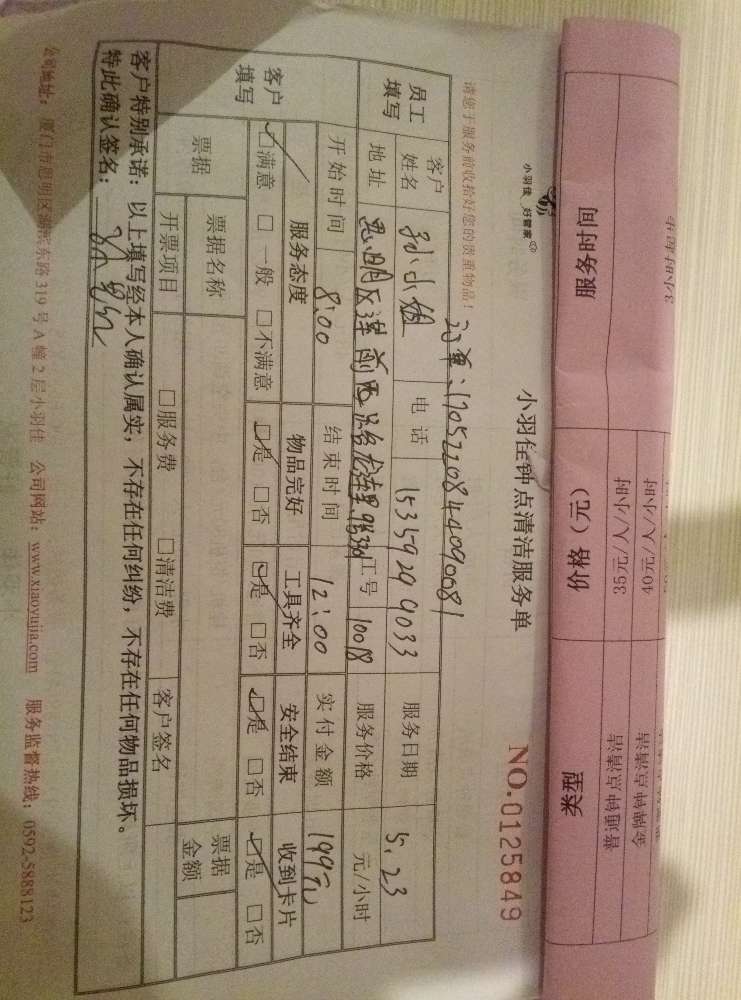 服务时间 价格（元） 类型
35元/人/小时 普通钟点清洁
40元/人/小时 金牌钟点清洁
小羽佳 好管家
小羽佳钟点清洁服务单
NO.0125849
请您于服务前收拾好您的贵重物品！
订单：1705220844090681
员工填写 客户姓名 孙小姐 电话 15359299033 服务日期 5.23
地址 思明区莲前西路 工号 10018 服务价格 元/小时
开始时间 8:00 结束时间 12:00 实付金额 199元
客户填写 服务态度 物品完好 工具齐全 安全结束 收到卡片
☑满意 □一般 □不满意 ☑是 □否 ☑是 □否 ☑是 □否 ☑是 □否
票据 票据名称 票据金额
开票项目 □服务费 □清洁费 客户签名
客户特别承诺：以上填写经本人确认属实，不存在任何纠纷，不存在任何物品损坏。
特此确认签名：
公司地址：厦门市思明区湖滨东路319号A幢2层小羽佳 公司网站：www.xiaoyujia.com 服务监督热线：0592-5888123